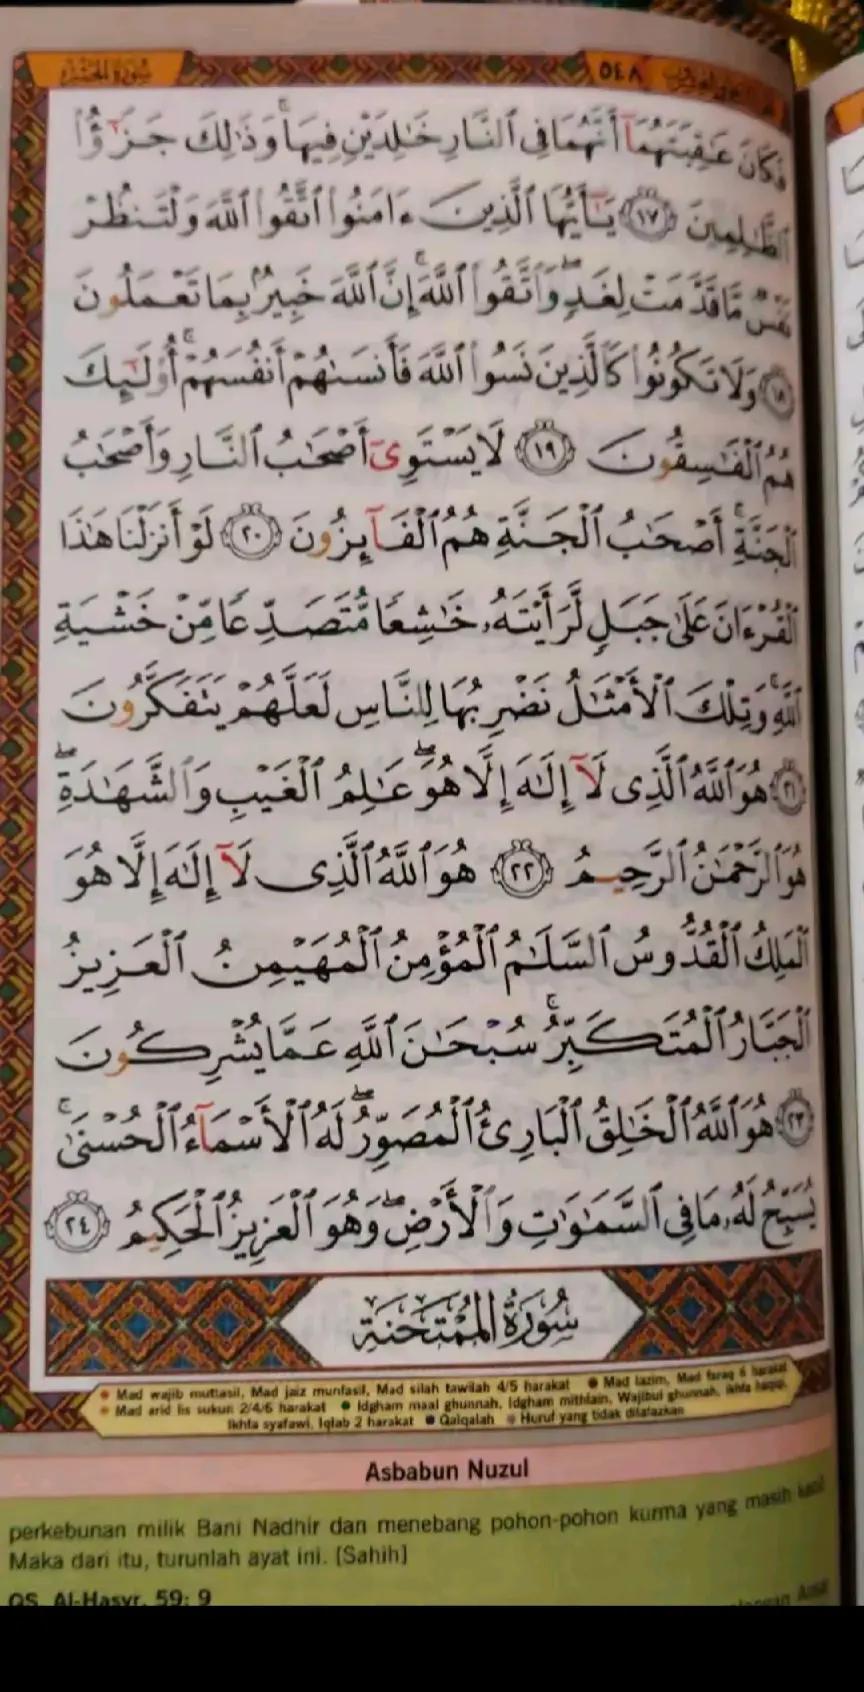 سورة الحشر
٥٤٨
فَكَانَ عَٰقِبَتَهُمَآ أَنَّهُمَا فِى ٱلنَّارِ خَٰلِدَيْنِ فِيهَا ۚ وَذَٰلِكَ جَزَٰٓؤُا۟
ٱلظَّٰلِمِينَ ١٧ يَٰٓأَيُّهَا ٱلَّذِينَ ءَامَنُوا۟ ٱتَّقُوا۟ ٱللَّهَ وَلْتَنظُرْ
نَفْسٌ مَّا قَدَّمَتْ لِغَدٍ ۖ وَٱتَّقُوا۟ ٱللَّهَ ۚ إِنَّ ٱللَّهَ خَبِيرٌۢ بِمَا تَعْمَلُونَ
١٨ وَلَا تَكُونُوا۟ كَٱلَّذِينَ نَسُوا۟ ٱللَّهَ فَأَنسَىٰهُمْ أَنفُسَهُمْ ۚ أُو۟لَٰٓئِكَ
هُمُ ٱلْفَٰسِقُونَ ١٩ لَا يَسْتَوِىٓ أَصْحَٰبُ ٱلنَّارِ وَأَصْحَٰبُ
ٱلْجَنَّةِ ۚ أَصْحَٰبُ ٱلْجَنَّةِ هُمُ ٱلْفَآئِزُونَ ٢٠ لَوْ أَنزَلْنَا هَٰذَا
ٱلْقُرْءَانَ عَلَىٰ جَبَلٍ لَّرَأَيْتَهُۥ خَٰشِعًا مُّتَصَدِّعًا مِّنْ خَشْيَةِ
ٱللَّهِ ۚ وَتِلْكَ ٱلْأَمْثَٰلُ نَضْرِبُهَا لِلنَّاسِ لَعَلَّهُمْ يَتَفَكَّرُونَ
٢١ هُوَ ٱللَّهُ ٱلَّذِى لَآ إِلَٰهَ إِلَّا هُوَ ۖ عَٰلِمُ ٱلْغَيْبِ وَٱلشَّهَٰدَةِ ۖ
هُوَ ٱلرَّحْمَٰنُ ٱلرَّحِيمُ ٢٢ هُوَ ٱللَّهُ ٱلَّذِى لَآ إِلَٰهَ إِلَّا هُوَ
ٱلْمَلِكُ ٱلْقُدُّوسُ ٱلسَّلَٰمُ ٱلْمُؤْمِنُ ٱلْمُهَيْمِنُ ٱلْعَزِيزُ
ٱلْجَبَّارُ ٱلْمُتَكَبِّرُ ۚ سُبْحَٰنَ ٱللَّهِ عَمَّا يُشْرِكُونَ
٢٣ هُوَ ٱللَّهُ ٱلْخَٰلِقُ ٱلْبَارِئُ ٱلْمُصَوِّرُ ۖ لَهُ ٱلْأَسْمَآءُ ٱلْحُسْنَىٰ ۚ
يُسَبِّحُ لَهُۥ مَا فِى ٱلسَّمَٰوَٰتِ وَٱلْأَرْضِ ۖ وَهُوَ ٱلْعَزِيزُ ٱلْحَكِيمُ ٢٤
سُورَةُ المُمْتَحَنَةِ
Mad wajib muttasil, Mad jaiz munfasil, Mad silah tawilah 4/5 harakat Mad lazim, Mad faraq 6 harakat
Mad arid lis sukun 2/4/6 harakat Idgham maal ghunnah, Idgham mithlain, Wajibul ghunnah, Ikhfa haqiqi,
Ikhfa syafawi, Iqlab 2 harakat Qalqalah Huruf yang tidak dilafazkan
Asbabun Nuzul
perkebunan milik Bani Nadhir dan menebang pohon-pohon kurma yang masih kecil
Maka dari itu, turunlah ayat ini. [Sahih]
QS. Al-Hasyr, 59: 9